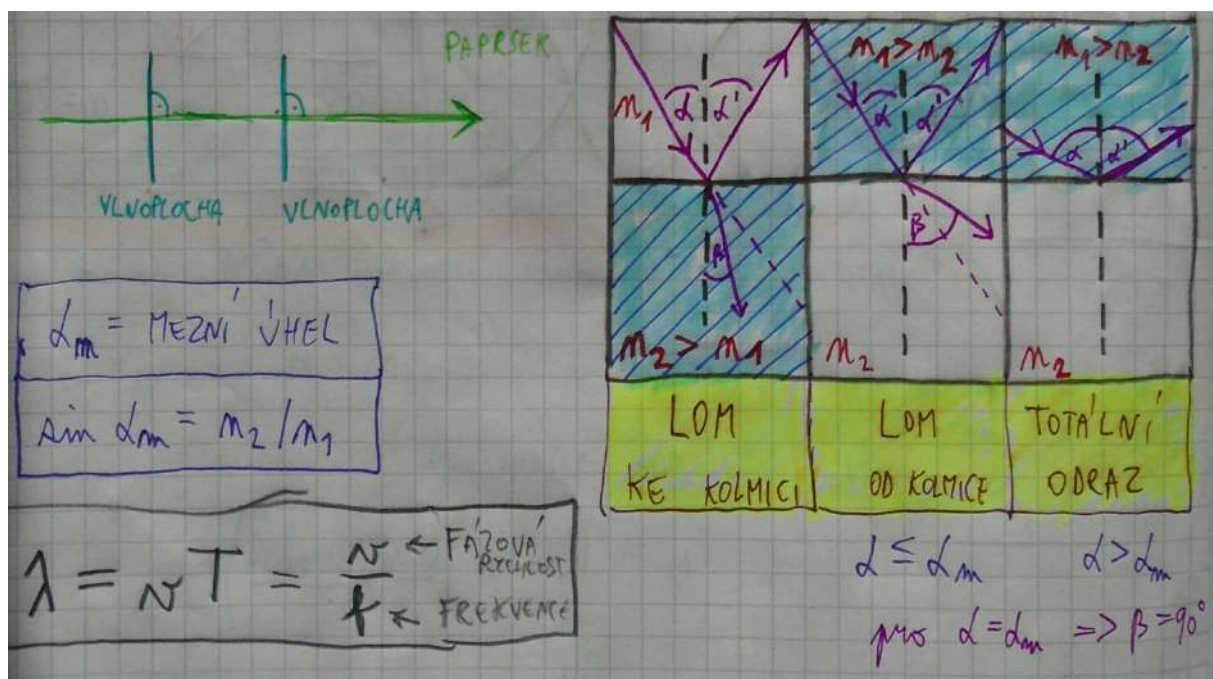 PAPRSEK
VLNOPLOCHA VLNOPLOCHA
αm = MEZNÍ ÚHEL
sin αm = n2/n1
λ = vT = v/f
← FÁZOVÁ RYCHLOST
← FREKVENCE
n1 α α'
β
n2 > n1
n1 > n2
α α'
β'
n2
n1 > n2
α α'
n2
LOM
KE KOLMICI
LOM
OD KOLMICE
TOTÁLNÍ
ODRAZ
α ≤ αm α > αm
pro α = αm => β = 90°